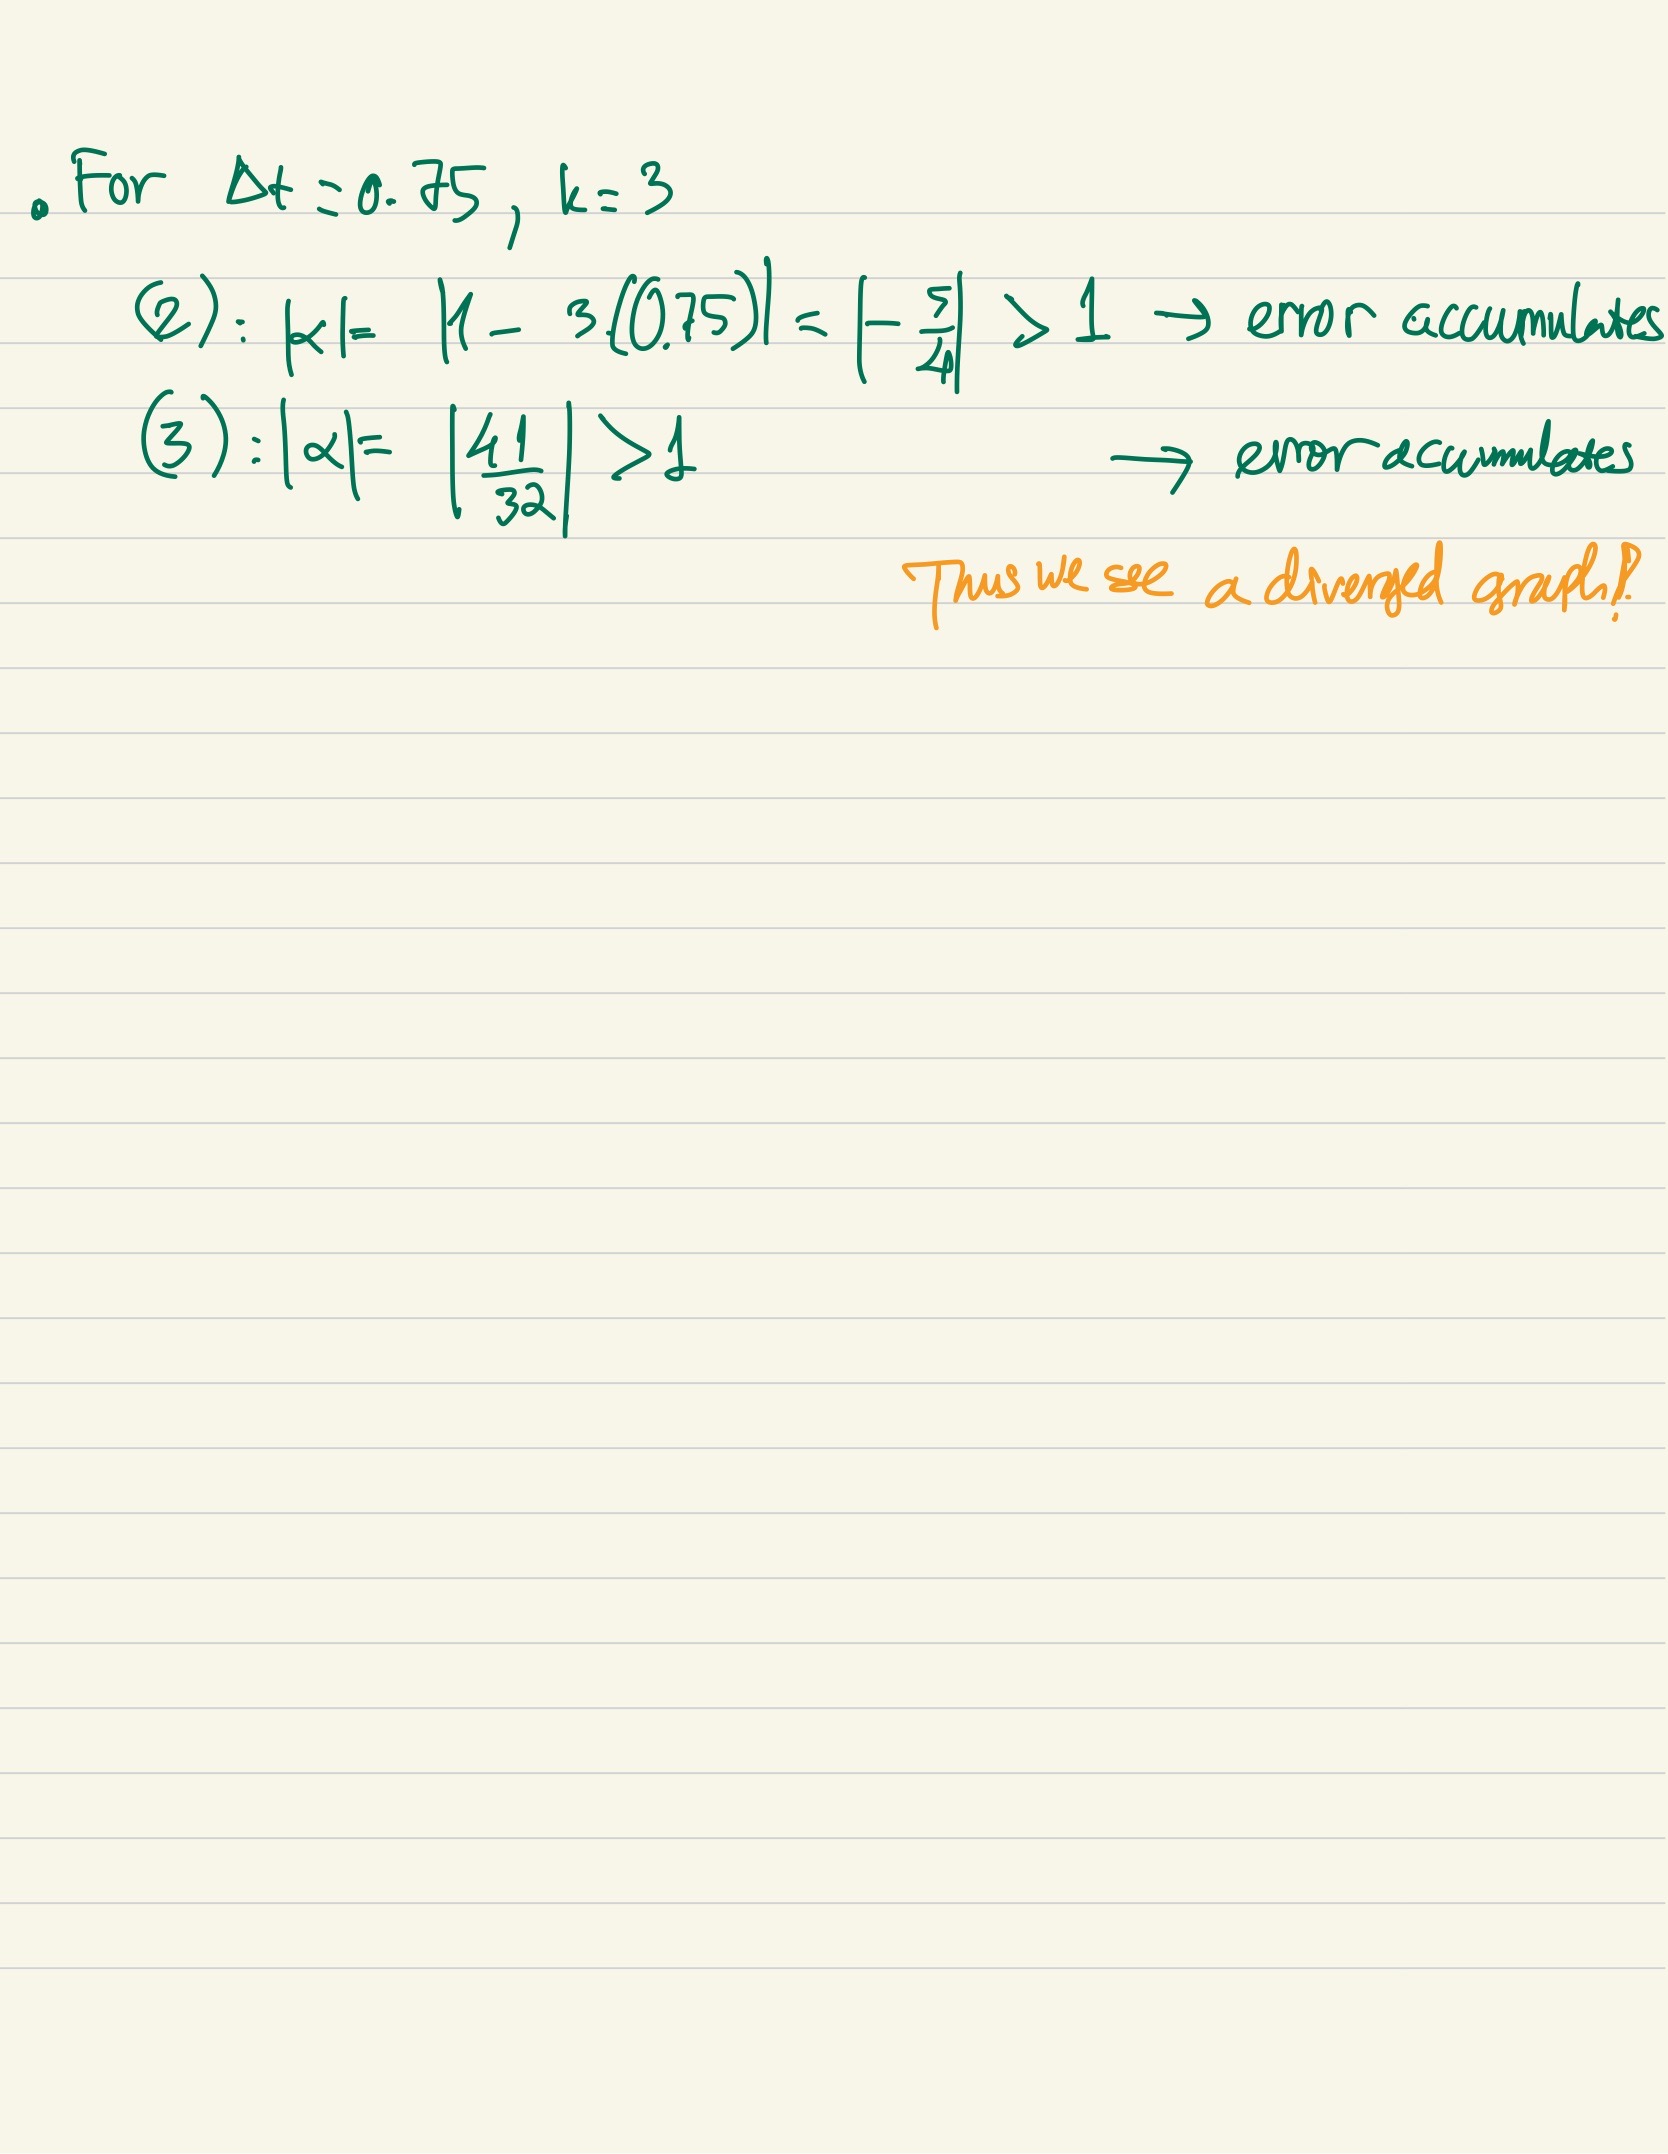 . For Δt = 0.75, k = 3
(2): |α| = |1 - 3.(0.75)| = |- 5/4| > 1 → error accumulates
(3): |α| = |41/32| > 1 → error accumulates
Thus we see a diverged graph!